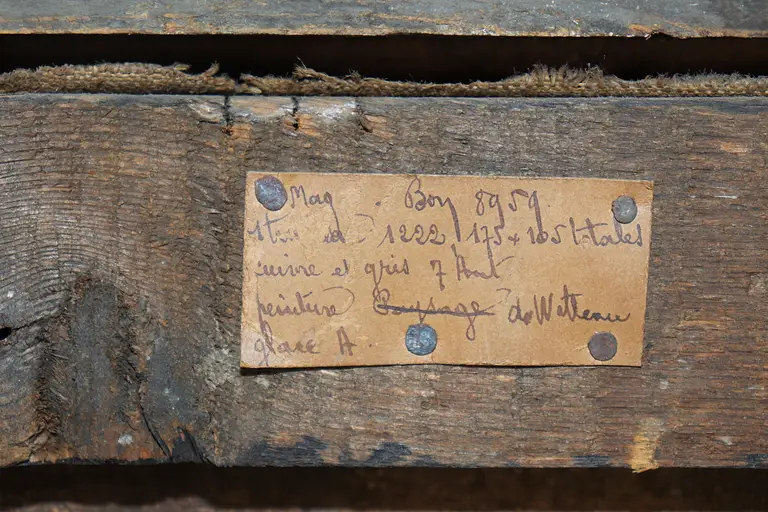 Mag. Bon 8959.
1222 175 x 105 totales
cuivre et gris 7
peinture Paysage de Watteau
glace A.